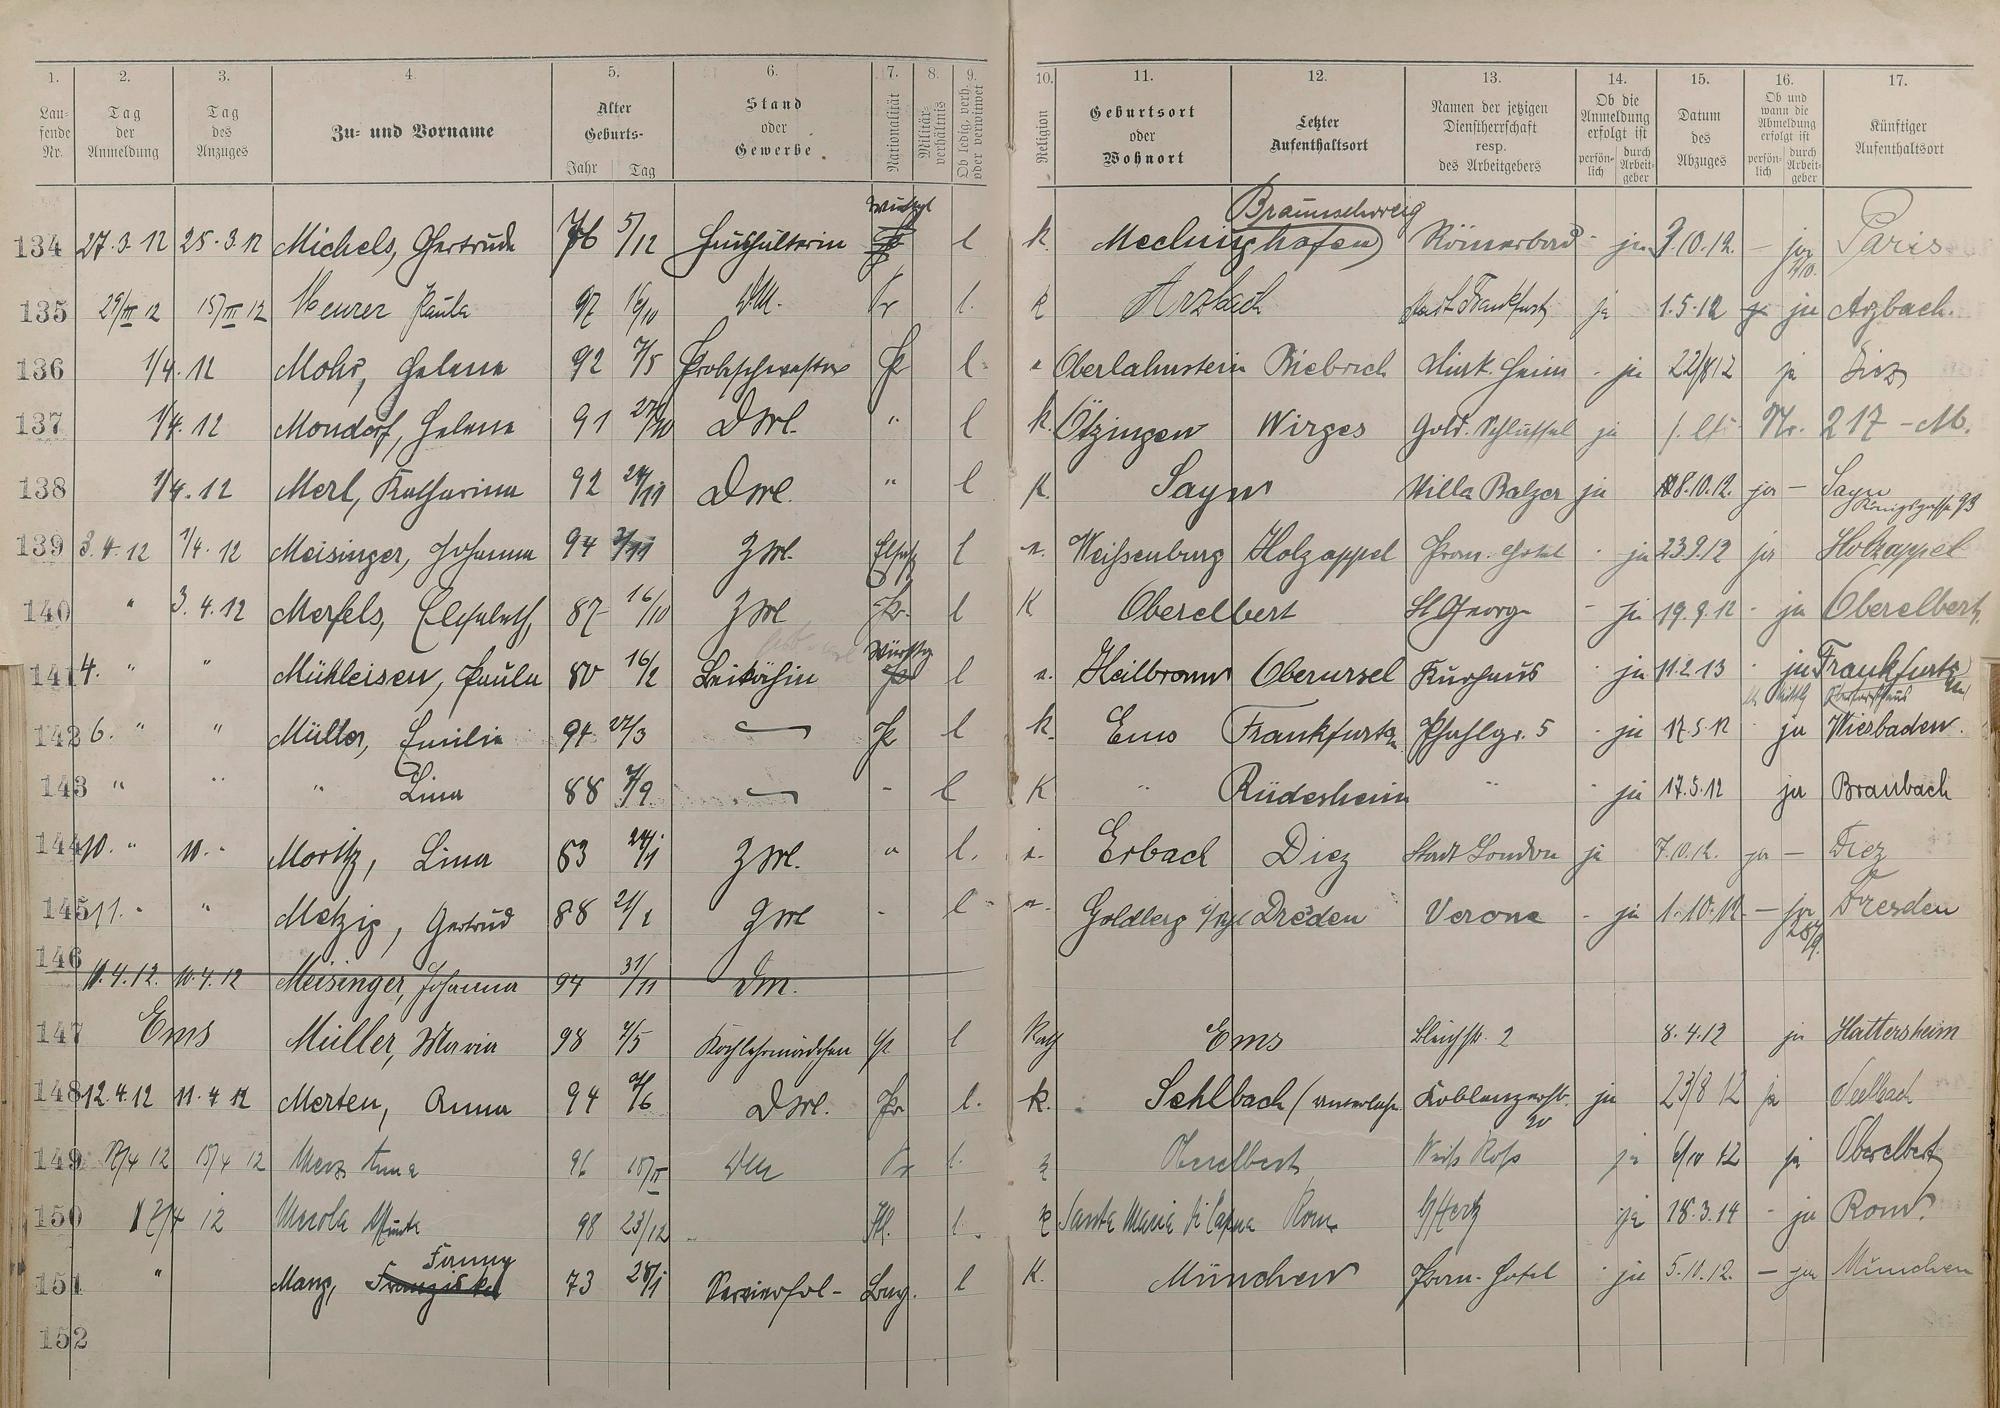 1. 2. 3. 4. 5. 6. 7. 8. 9. 10. 11. 12. 13. 14. 15. 16. 17.
Lau-fende Nr. Tag der Anmeldung Tag des Anzuges Zu- und Vorname Alter Geburts- Jahr Tag Stand oder Gewerbe. Nationalität Militär-verhältnis Ob ledig, verh. oder verwitwet Religion Geburtsort oder Wohnort Letzter Aufenthaltsort Namen der jetzigen Dienstherrschaft resp. des Arbeitgebers Ob die Anmeldung erfolgt ist persön-lich durch Arbeit-geber Datum des Abzuges Ob und wann die Abmeldung erfolgt ist persön-lich durch Arbeit-geber Künftiger Aufenthaltsort
Braunschweig
134 27.3.12 25.3.12 Michels, Gertrude 76 5/12 l k. Römerbad - ja 9.10.12. - ja Paris
135 29/III 12 15/III 12 Meurer Paula 97 16/10 Pr l. k Arzbach Stadt Frankfurt ja 1.5.12 ja ja Arzbach.
136 1/4.12 Mohr, Helene 92 7/5 Probeschwester Pr l. e Oberlahnstein Biebrich - ja 22/8 12 ja Diez
137 1/4.12 Mondorf, Helene 91 D Ml. " l k. Ötzingen Wirges Gold. Schlüssel ja Nr. 217 - M.
138 1/4.12 Merl, Katharina 92 24/11 D Ml. " l k. Sayn Villa Balzer ja 8.10.12. ja - Sayn
139 3.4.12 1/4.12 Meisinger, Johanna 94 Z Ml. Elsaß l e. Weißenburg Holzappel Prom. Hotel - ja 23.9.12 ja Holzappel
140 " 3.4.12 Merfels, Elisabeth, 87 16/10 Z Ml Pr. l K Oberelbert St Georg - ja 19.9.12 - ja Oberelbert.
Württg
141 4. " " Mühleisen, Paula 80 16/2 Beiköchin l e. Heilbronn Oberursel Kurhaus - ja 11.2.13 - ja Frankfurt
142 6. " " Müller, Emilie 94 27/3 Pr l k. Ems Frankfurt a. Pfahlgr. 5 - ja 17.5.12 ja Wiesbaden.
143 " " " Lina 88 7/9 - l K " Rüdesheim " - ja 17.5.12 ja Braubach
144 10. " 10. " Moritz, Lina 83 24/1 Z Ml. " l. Erbach Diez Stadt London ja 7.10.12. ja - Diez
145 11. " " Metzig, Gertrud 88 Z Ml - l e. Goldberg Dresden Verona - ja 1.10.12 - ja Dresden
28/9.
146 11.4.12. 10.4.12 Meisinger, Johanna 94 31/11 D M.
147 Ems Müller, Maria 98 4/5 Kochlehrmädchen Pr l Kath Ems Bleichstr. 2 8.4.12 ja Hattersheim
148 12.4.12 11.4.12 Merten, Anna 94 D Ml. Pr l. k. Sehlbach (Unterlahn. Koblenzerstr. ja 23/8 12 ja Seelbach
20
149 17/4 12 15/4 12 Merz Anna 96 15/II Pr l. k Oberelbert Weiß Roß ja 6/10 12 ja Oberelbert
150 17/4 12 Merola 98 23/12 It. l. k Santa Maria di Capua Rom ja 18.3.14 - ja Rom.
Fanny
151 " Manz, Franziska 73 28/1 Servierfrl- Bay. l K. München Prom. Hotel - ja 5.10.12. - ja München
152